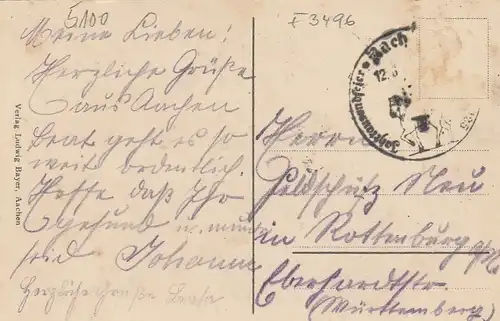 5100
F 3496
Meine Lieben!
Herzliche Grüße
aus Aachen
Beat geht es so
weit ordentlich.
Hoffe daß Ihr
gesund u. munter
seid Johann
Herzliche Grüße Beata
Verlag Ludwig Bayer, Aachen
Jahrtausendfeier • Aach
12.
Herrn
Feldschütz Neu
in Rottenburg a/N
Eberhardtstr
Württemberg